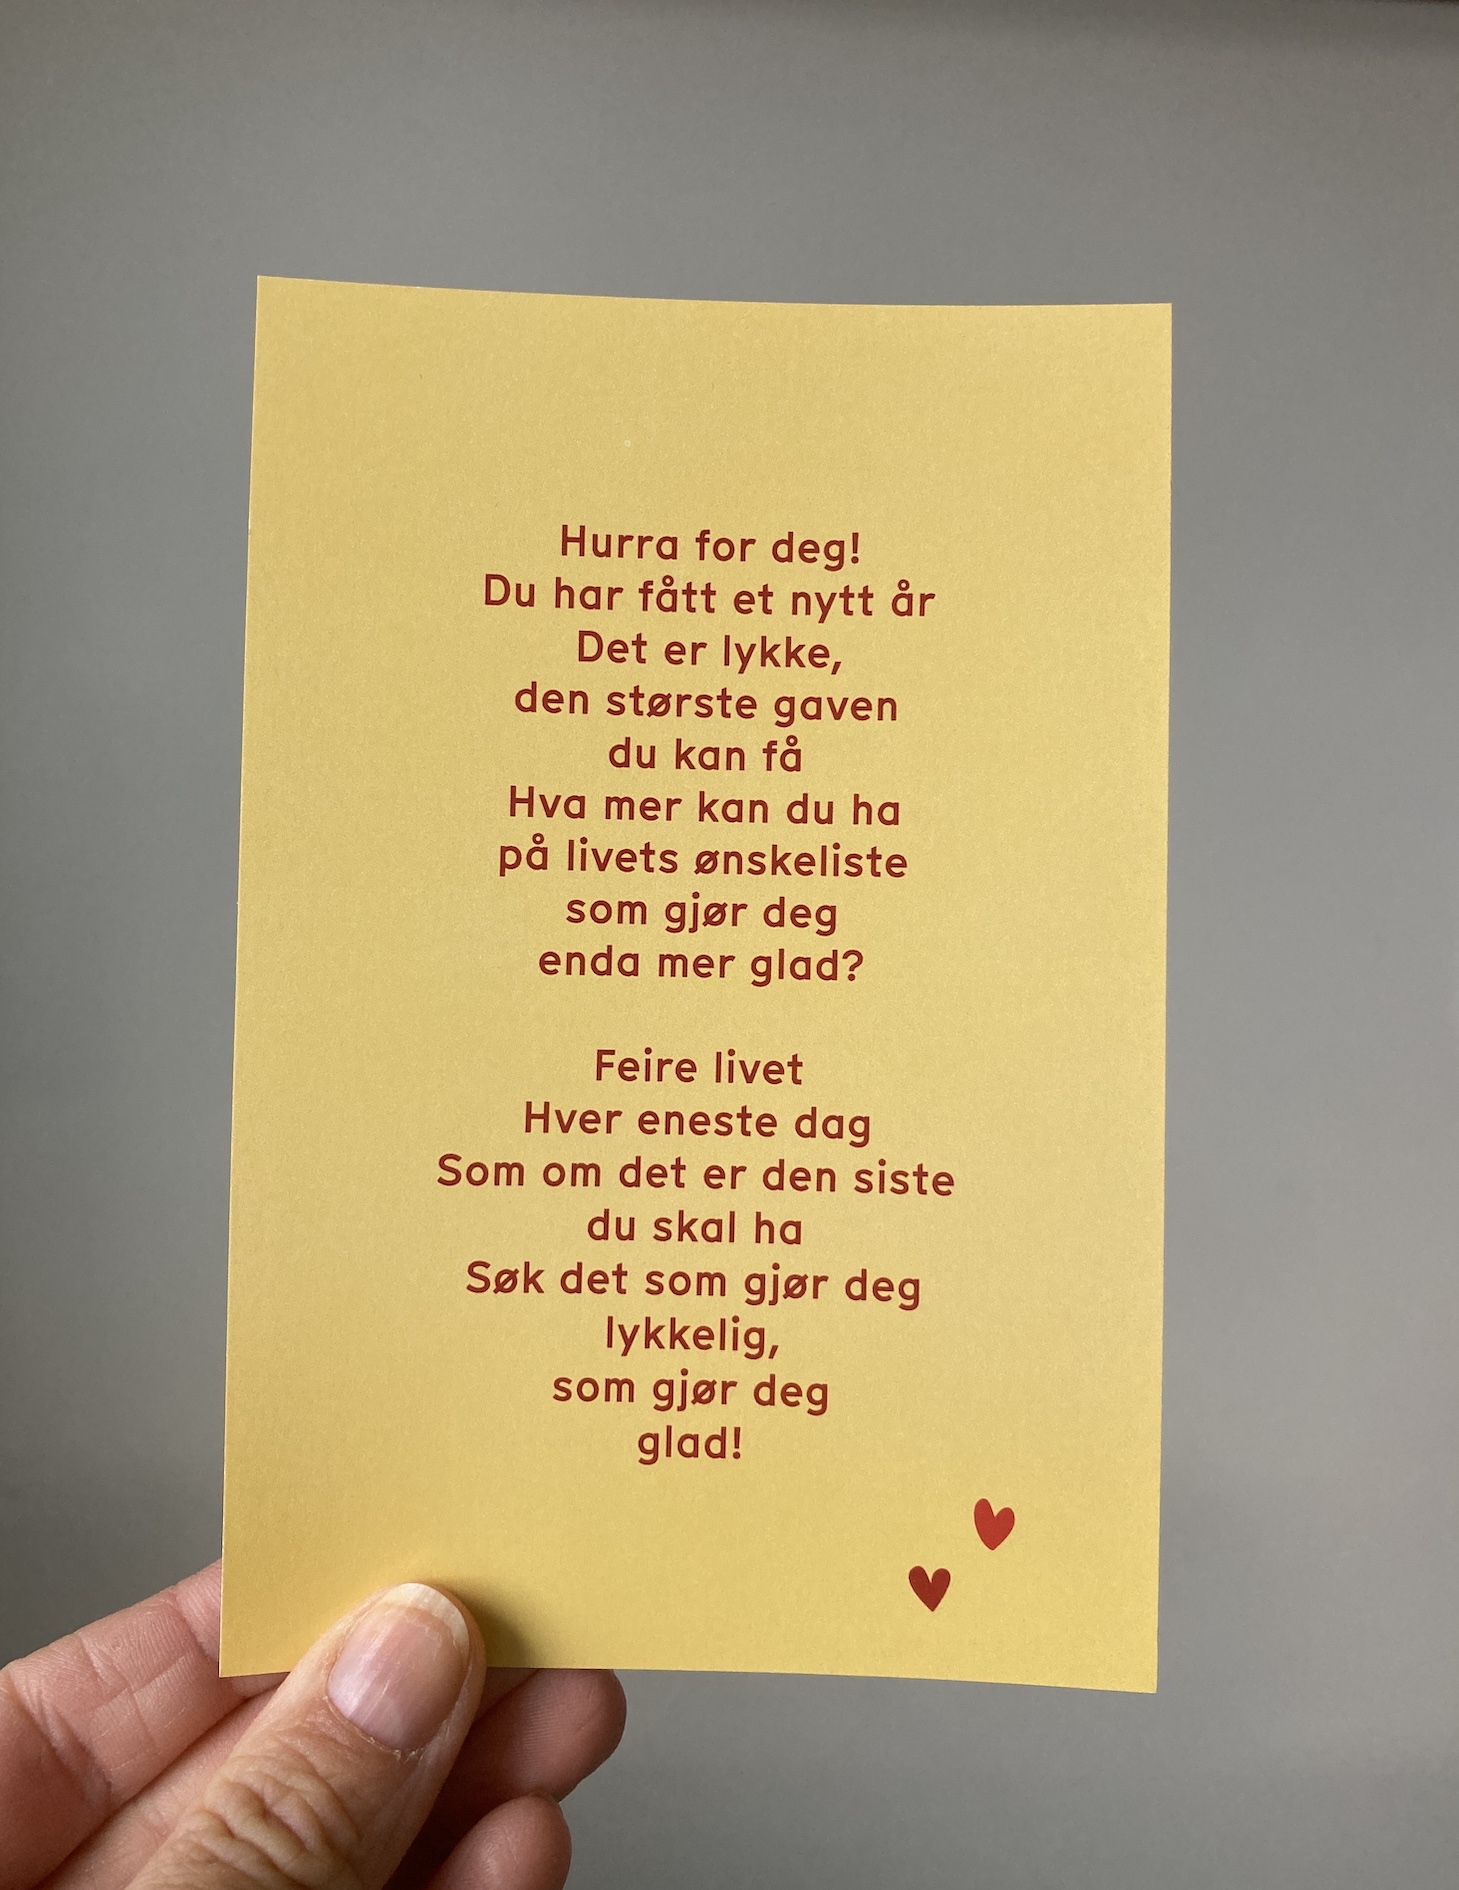 Hurra for deg!
Du har fått et nytt år
Det er lykke,
den største gaven
du kan få
Hva mer kan du ha
på livets ønskeliste
som gjør deg
enda mer glad?
Feire livet
Hver eneste dag
Som om det er den siste
du skal ha
Søk det som gjør deg
lykkelig,
som gjør deg
glad!